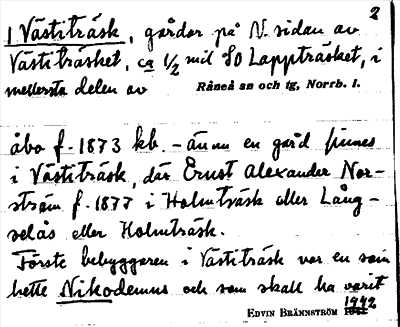 2
1 Västiträsk, gårdar på N. sidan av
Västiträsket, ca 1/2 mil SO Lappträsket, i
mellersta delen av Råneå sn och tg, Norrb. l.
åbo f. 1873 kb. – ännu en gård finnes
i Västiträsk, där Ernst Alexander Nor-
ström f. 1877 i Holmträsk eller Lång-
selås eller Holmträsk.
Förste bebyggaren i Västiträsk var en som
hette Nikodemus och som skall ha varit
EDVIN BRÄNNSTRÖM 1942